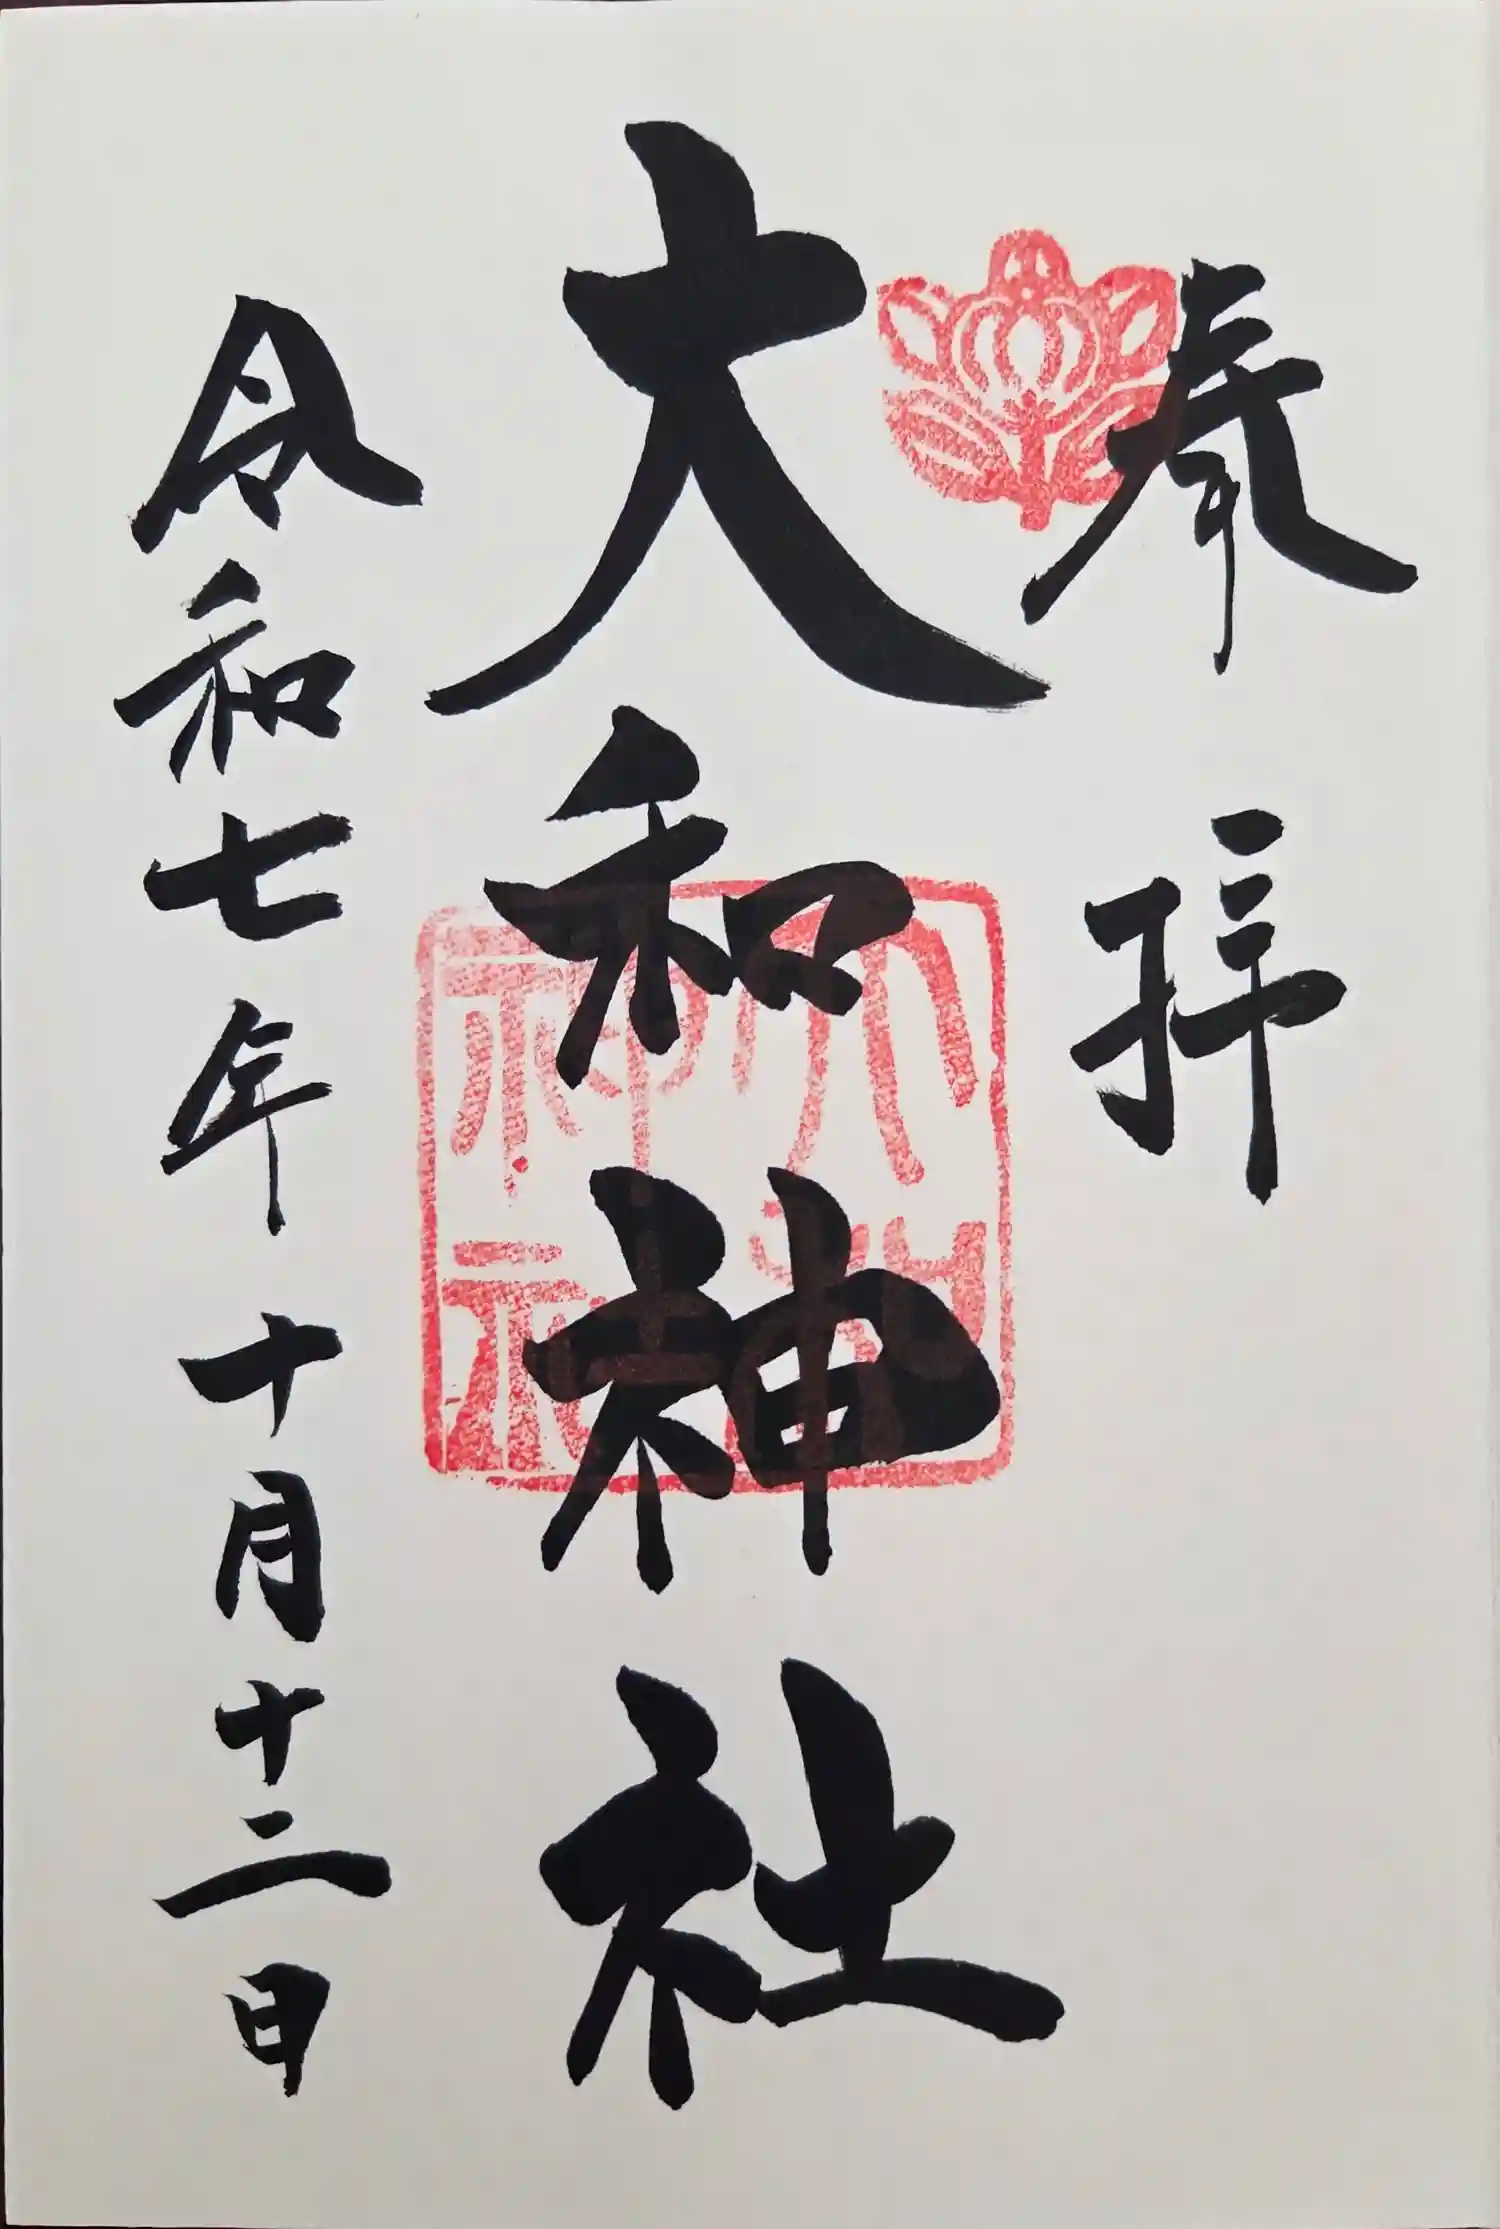 奉拝
大和神社
大和神社
令和七年十月十二日